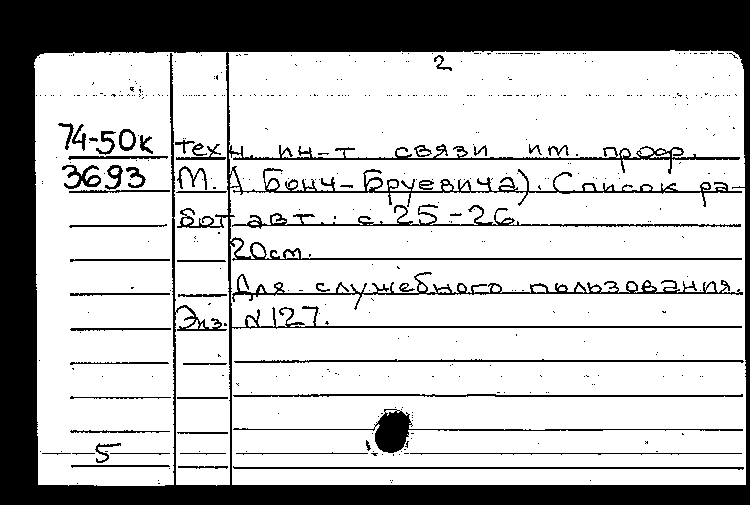 2
74-50к техн. ин-т связи им. проф.
3693 М. А. Бонч-Бруевича). Список ра-
бот авт.: с. 25-26.
20см.
Для служебного пользования.
Экз. №127.
5